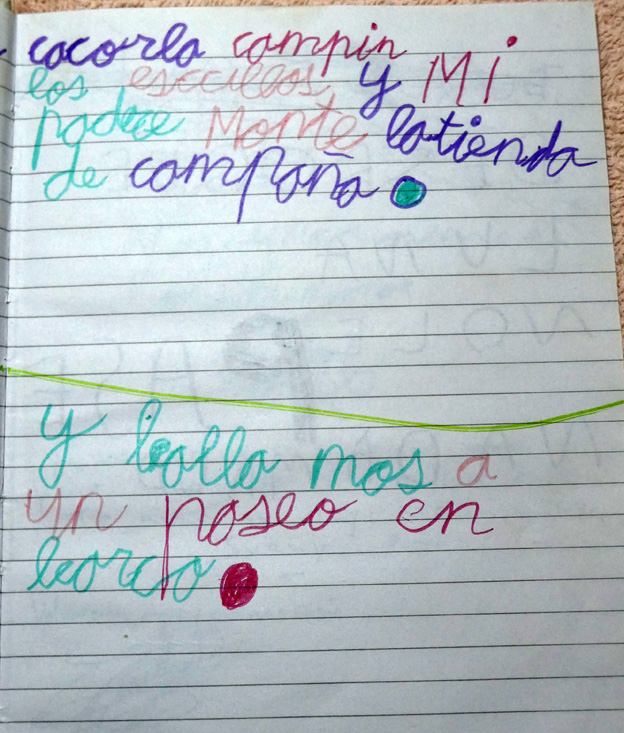 cacorla campin
los y MI
padre Monte latienda
de campaña.
y balla mos a
un paseo en
barco.